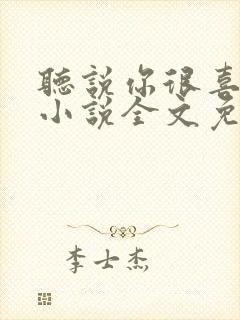 聽說你很喜
小說全文免
李士杰